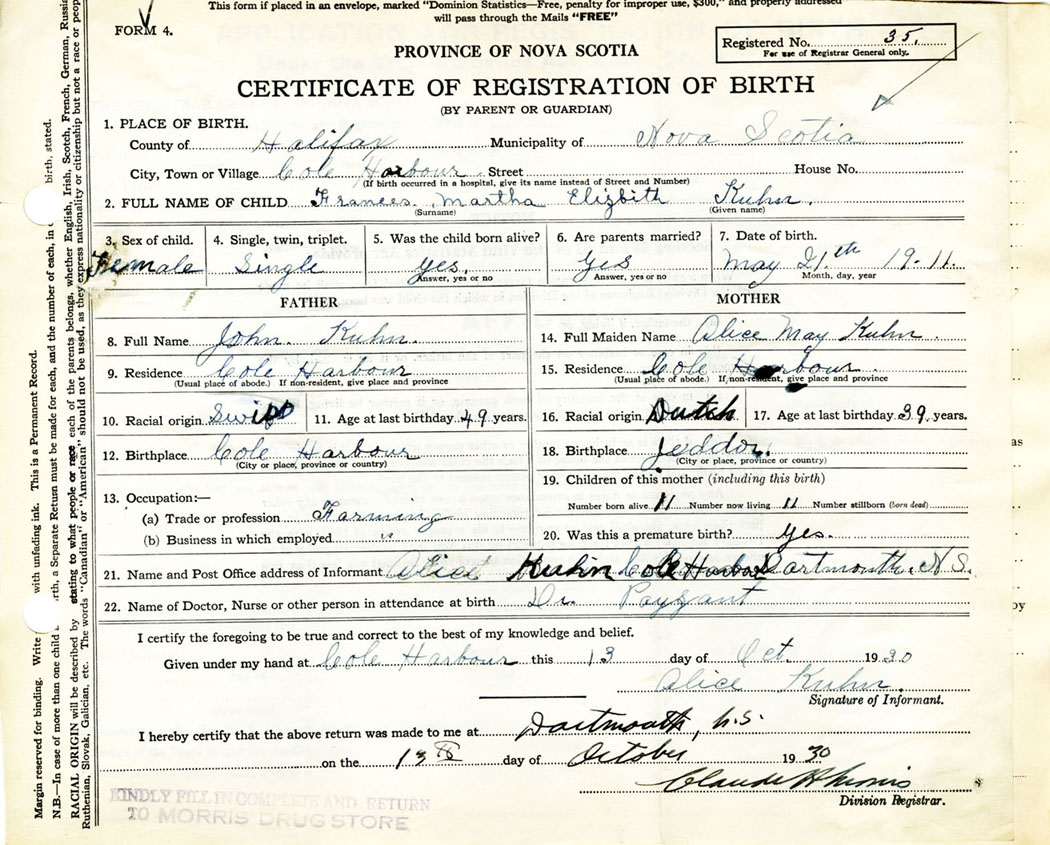 This form if placed in an envelope, marked "Dominion Statistics—Free, penalty for improper use, $300," and properly addressed
will pass through the Mails "FREE"
FORM 4.
PROVINCE OF NOVA SCOTIA
Registered No. 35.
For use of Registrar General only.
CERTIFICATE OF REGISTRATION OF BIRTH
(BY PARENT OR GUARDIAN)
1. PLACE OF BIRTH.
County of Halifax Municipality of Nova Scotia
City, Town or Village Cole Harbour Street House No.
(If birth occurred in a hospital, give its name instead of Street and Number)
2. FULL NAME OF CHILD Frances Martha Elizbith Kuhn.
(Surname) (Given name)
3. Sex of child. 4. Single, twin, triplet. 5. Was the child born alive? 6. Are parents married? 7. Date of birth.
Female Single yes. Yes May 21.th 19-11.
Answer, yes or no Answer, yes or no Month, day, year
FATHER MOTHER
8. Full Name John Kuhn. 14. Full Maiden Name Alice May Kuhn.
9. Residence Cole Harbour 15. Residence Cole Harbour.
(Usual place of abode.) If non-resident, give place and province (Usual place of abode.) If non-resident, give place and province
10. Racial origin 11. Age at last birthday 49 years. 16. Racial origin Dutch 17. Age at last birthday 39 years.
12. Birthplace Cole Harbour 18. Birthplace Jeddor.
(City or place, province or country) (City or place, province or country)
13. Occupation:— 19. Children of this mother (including this birth)
(a) Trade or profession Farming Number born alive 11 Number now living 11 Number stillborn (born dead)
(b) Business in which employed " 20. Was this a premature birth? yes.
21. Name and Post Office address of Informant Alice Kuhn Cole Harbour Dartmouth. N.S.
22. Name of Doctor, Nurse or other person in attendance at birth Dr. Payzant
I certify the foregoing to be true and correct to the best of my knowledge and belief.
Given under my hand at Cole Harbour this 13 day of Oct. 1930
Alice Kuhn.
Signature of Informant.
I hereby certify that the above return was made to me at Dartmouth, N.S.
on the 13th day of October 1930
Division Registrar.
KINDLY FILL IN COMPLETE AND RETURN
TO MORRIS DRUG STORE
Margin reserved for binding. Write with unfading ink. This is a Permanent Record.
N.B.—In case of more than one child a Separate Return must be made for each, and the number of each, in birth, stated.
RACIAL ORIGIN will be described by stating to what people or race each of the parents belongs, whether English, Irish, Scotch, French, German,
Ruthenian, Slovak, Galician, etc. The words "Canadian" or "American" should not be used, as they express nationality or citizenship but not a race or